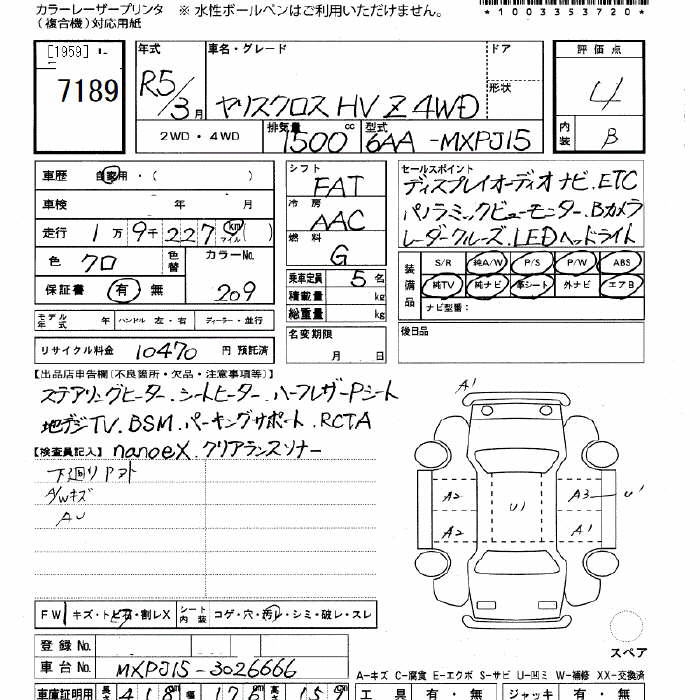 カラーレーザープリンタ ※ 水性ボールペンはご利用いただけません。
(複合機)対応用紙
*1003353720*
[1959]
7189
年式 車名・グレード ドア 評価点
R5/3月 ヤリスクロスHV Z 4WD 形状 4
2WD・4WD 排気量 1500 cc 型式 6AA-MXPJ15 内装 B
車歴 自家用・( )
車検 年 月
走行 1万9千227 km マイル ( )
色 クロ 色替 カラーNo.
保証書 有 無 209
モデル年式 年 ハンドル 左・右 ディーラー・並行
リサイクル料金 10470 円 預託済
シフト FAT
冷房 AAC
燃料 G
乗車定員 5 名
積載量 kg
総重量 kg
名変期限
月 日
セールスポイント
ディスプレイオーディオ ナビ.ETC
パノラミックビューモニター.Bカメラ
レーダークルーズ.LEDヘッドライト
装備品 S/R 純A/W P/S P/W ABS
純TV 純ナビ 革シート 外ナビ エアB
ナビ型番:
後日品
【出品店申告欄(不良箇所・欠品・注意事項等)】
ステアリングヒーター.シートヒーター.ハーフレザーPシート
地デジTV.BSM.パーキングサポート.RCTA
【検査員記入】 nanoeX.クリアランスソナー
下廻りサビ
A/Wキズ
AU
A1
A2 U1 A3 U1
A2 A1
FW キズ・トビ石・割レX シート内装 コゲ・穴・汚レ・シミ・破レ・スレ
スペア
登録No.
車台No. MXPJ15-3026666
A-キズ C-腐食 E-エクボ S-サビ U-凹ミ W-補修 XX-交換済
車庫証明用 長さ 418 cm 幅 178 cm 高さ 159 工具 有・無 ジャッキ 有・無